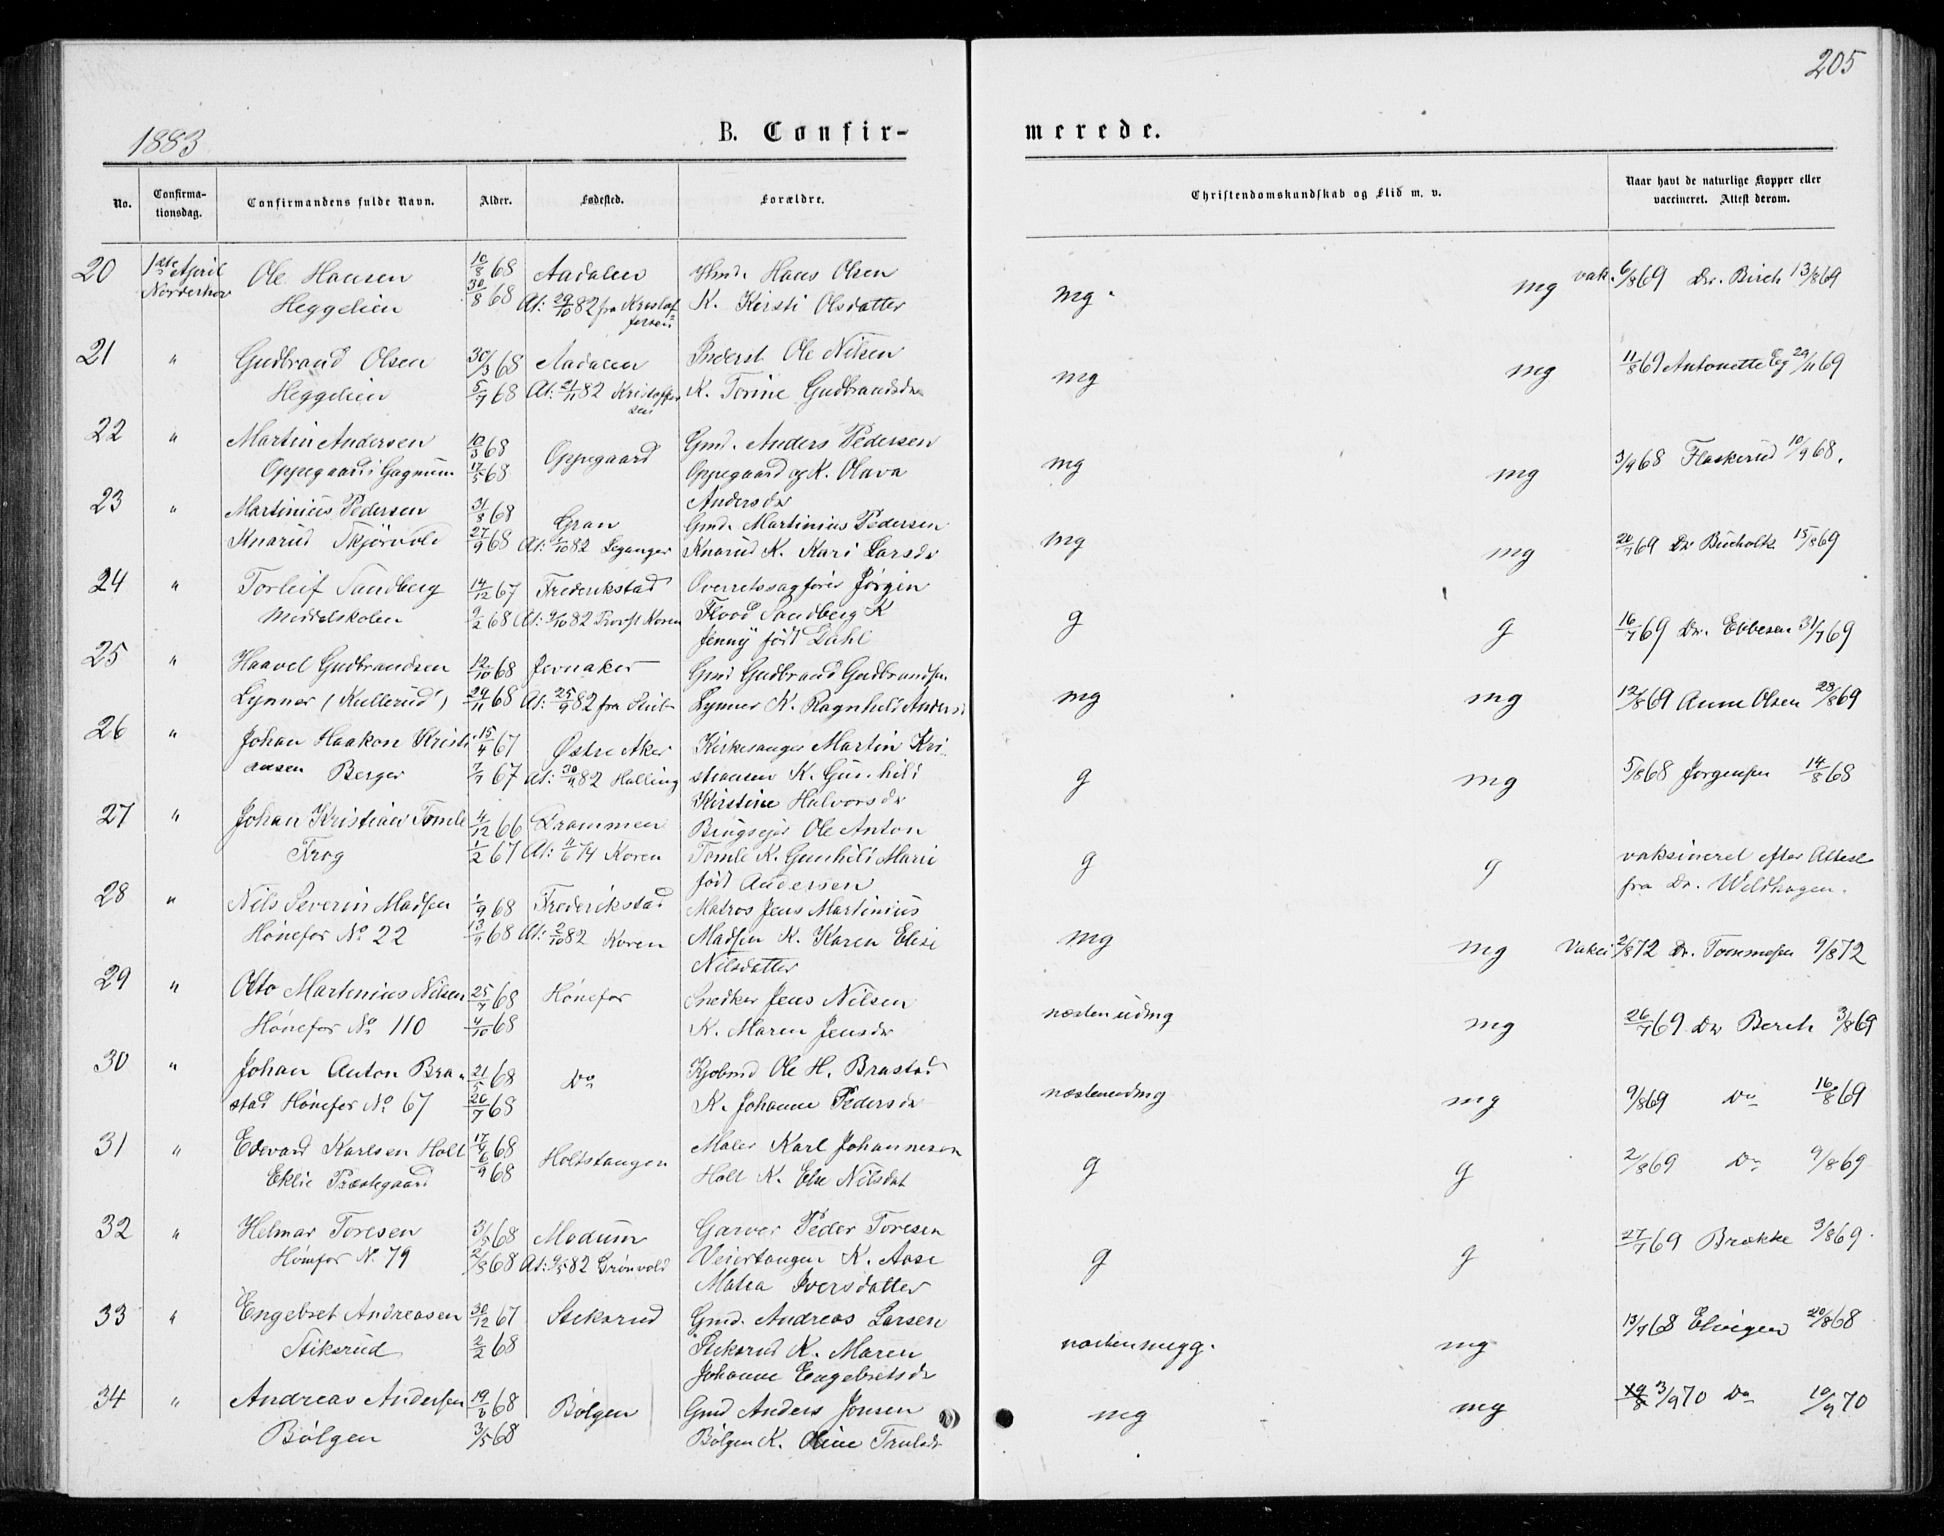 205
1883
B. Confir-
merede.
No.
Confirma-
tionsdag.
Confirmandens fulde Navn.
Alder.
Fødested.
Forældre.
Christendomskundskab og Flid m. v.
Naar havt de naturlige Kopper eller
vaccineret. Attest derom.
20 1ste April Ole Hansen 10/8 68 Aadalen Hans Olsen mg. mg vak. 6/8 69 Dr. Birch 13/8 69
Norderhov Heggelien 30/8 68 At: 29/10 82 fra Kristof K. Kirsti Olsdatter
fersen
21 " Gudbrand Olsen 30/3 68 Aadalen Inderst Ole Nilsen mg mg 11/8 69 Antonette Eg 29/11 69
Heggelien 5/7 68 At: 21/11 82 Kristoffer K. Torine Gudbrandsdr
sen
22 " Martin Andersen 10/3 68 Oppegaard Gmd. Anders Pedersen mg mg 3/9 68 Flaskerud 10/9 68.
Oppegaard i Gagnum 17/5 68 Oppegaard og K. Olava
Andersdr
23 " Martinius Pedersen 31/8 68 Gran Gmd. Martinius Pedersen mg mg 20/7 69 Dr Buchholtz 15/8 69
Knarud Tkjørvold 27/9 68 At: 82 Leganger Knarud K. Kari Larsdr
24 " Torleif Sandberg 14/12 67 Frederikstad Overretssagfører Jørgen g g 16/7 69 Dr. Ebbesen 31/7 69
Middelskolen 9/2 68 At: 9/10 82 Provst Koren Flood Sandberg K
Jenny født Dahl
25 " Haavel Gudbrandsen 12/10 68 Jevnaker Gmd Gudbrand Gudbrandsen mg mg 12/8 69 Anne Olsen 28/8 69
Lynner (Kullerud) 29/11 68 At: 25/9 82 fra Lynner K. Ragnhild Anders
26 " Johan Haakon Kristi 15/4 67 Østre Aker Kirkesanger Martin Kri g mg 5/8 68 Jørgensen 14/8 68
ansen Berger 7/7 67 At: 30/9 82 Halling stiansen K. Gunhild
Kirstine Halvorsdr
27 " Johan Kristian Tomle 4/12 66 Drammen Brugsejer Ole Anton g g vaksineret efter Attest
Trøg 1/2 67 At: 11/6 74 Koren Tomle K. Gunhild Marie fra Dr. Weldhagen.
født Andersen
28 " Nils Severin Madsen 1/9 68 Frederikstad Matros Jens Martinius mg mg 2/8 72 Dr. Tommesen 9/8 72
Hønefos No 22 13/9 68 At: 2/10 82 Koren Madsen K. Karen Elise
Nilsdatter
29 " Otto Martinius Nilsen 25/7 68 Hønefos Snedker Jens Nilsen næsten udmg mg 26/7 69 Dr Berch 3/8 69
Hønefos No 110 4/10 68 K. Maren Jensdr
30 " Johan Anton Bra- 21/5 68 Do Kjøbmd Ole H. Brastad næsten udmg mg 9/8 69 Do 16/8 69
stad Hønefos No 67 26/7 68 K. Johanne Pedersdr
31 " Edevard Karlsen Holt 17/4 68 Holtstangen Maler Karl Johannesen g g 2/8 69 Do 9/8 69
Eklie Præstegaard 6/9 68 Holt K. Else Nilsdat
32 " Helmar Toresen 31/5 68 Modum Garver Peder Toresen g g 27/7 69 Brække 3/8 69.
Hønefos No 79 2/8 68 At: 9/5 82 Grønvold Veiertangen K. Aase
Matea Iversdatter
33 " Engebret Andreasen 30/12 67 Stiksrud Gmd. Andreas Larsen næsten megg. mg 13/7 68 Elvigen 20/8 68
Stiksrud 2/2 68 Stiksrud K. Maren
Johanne Engebretsdr
34 " Andreas Andersen 19/3 68 Bølgen Gmd Anders Jonsen mg mg 3/9 70 Do 10/9 70
Bølgen 3/5 68 Bølgen K. Oline Trulsdr